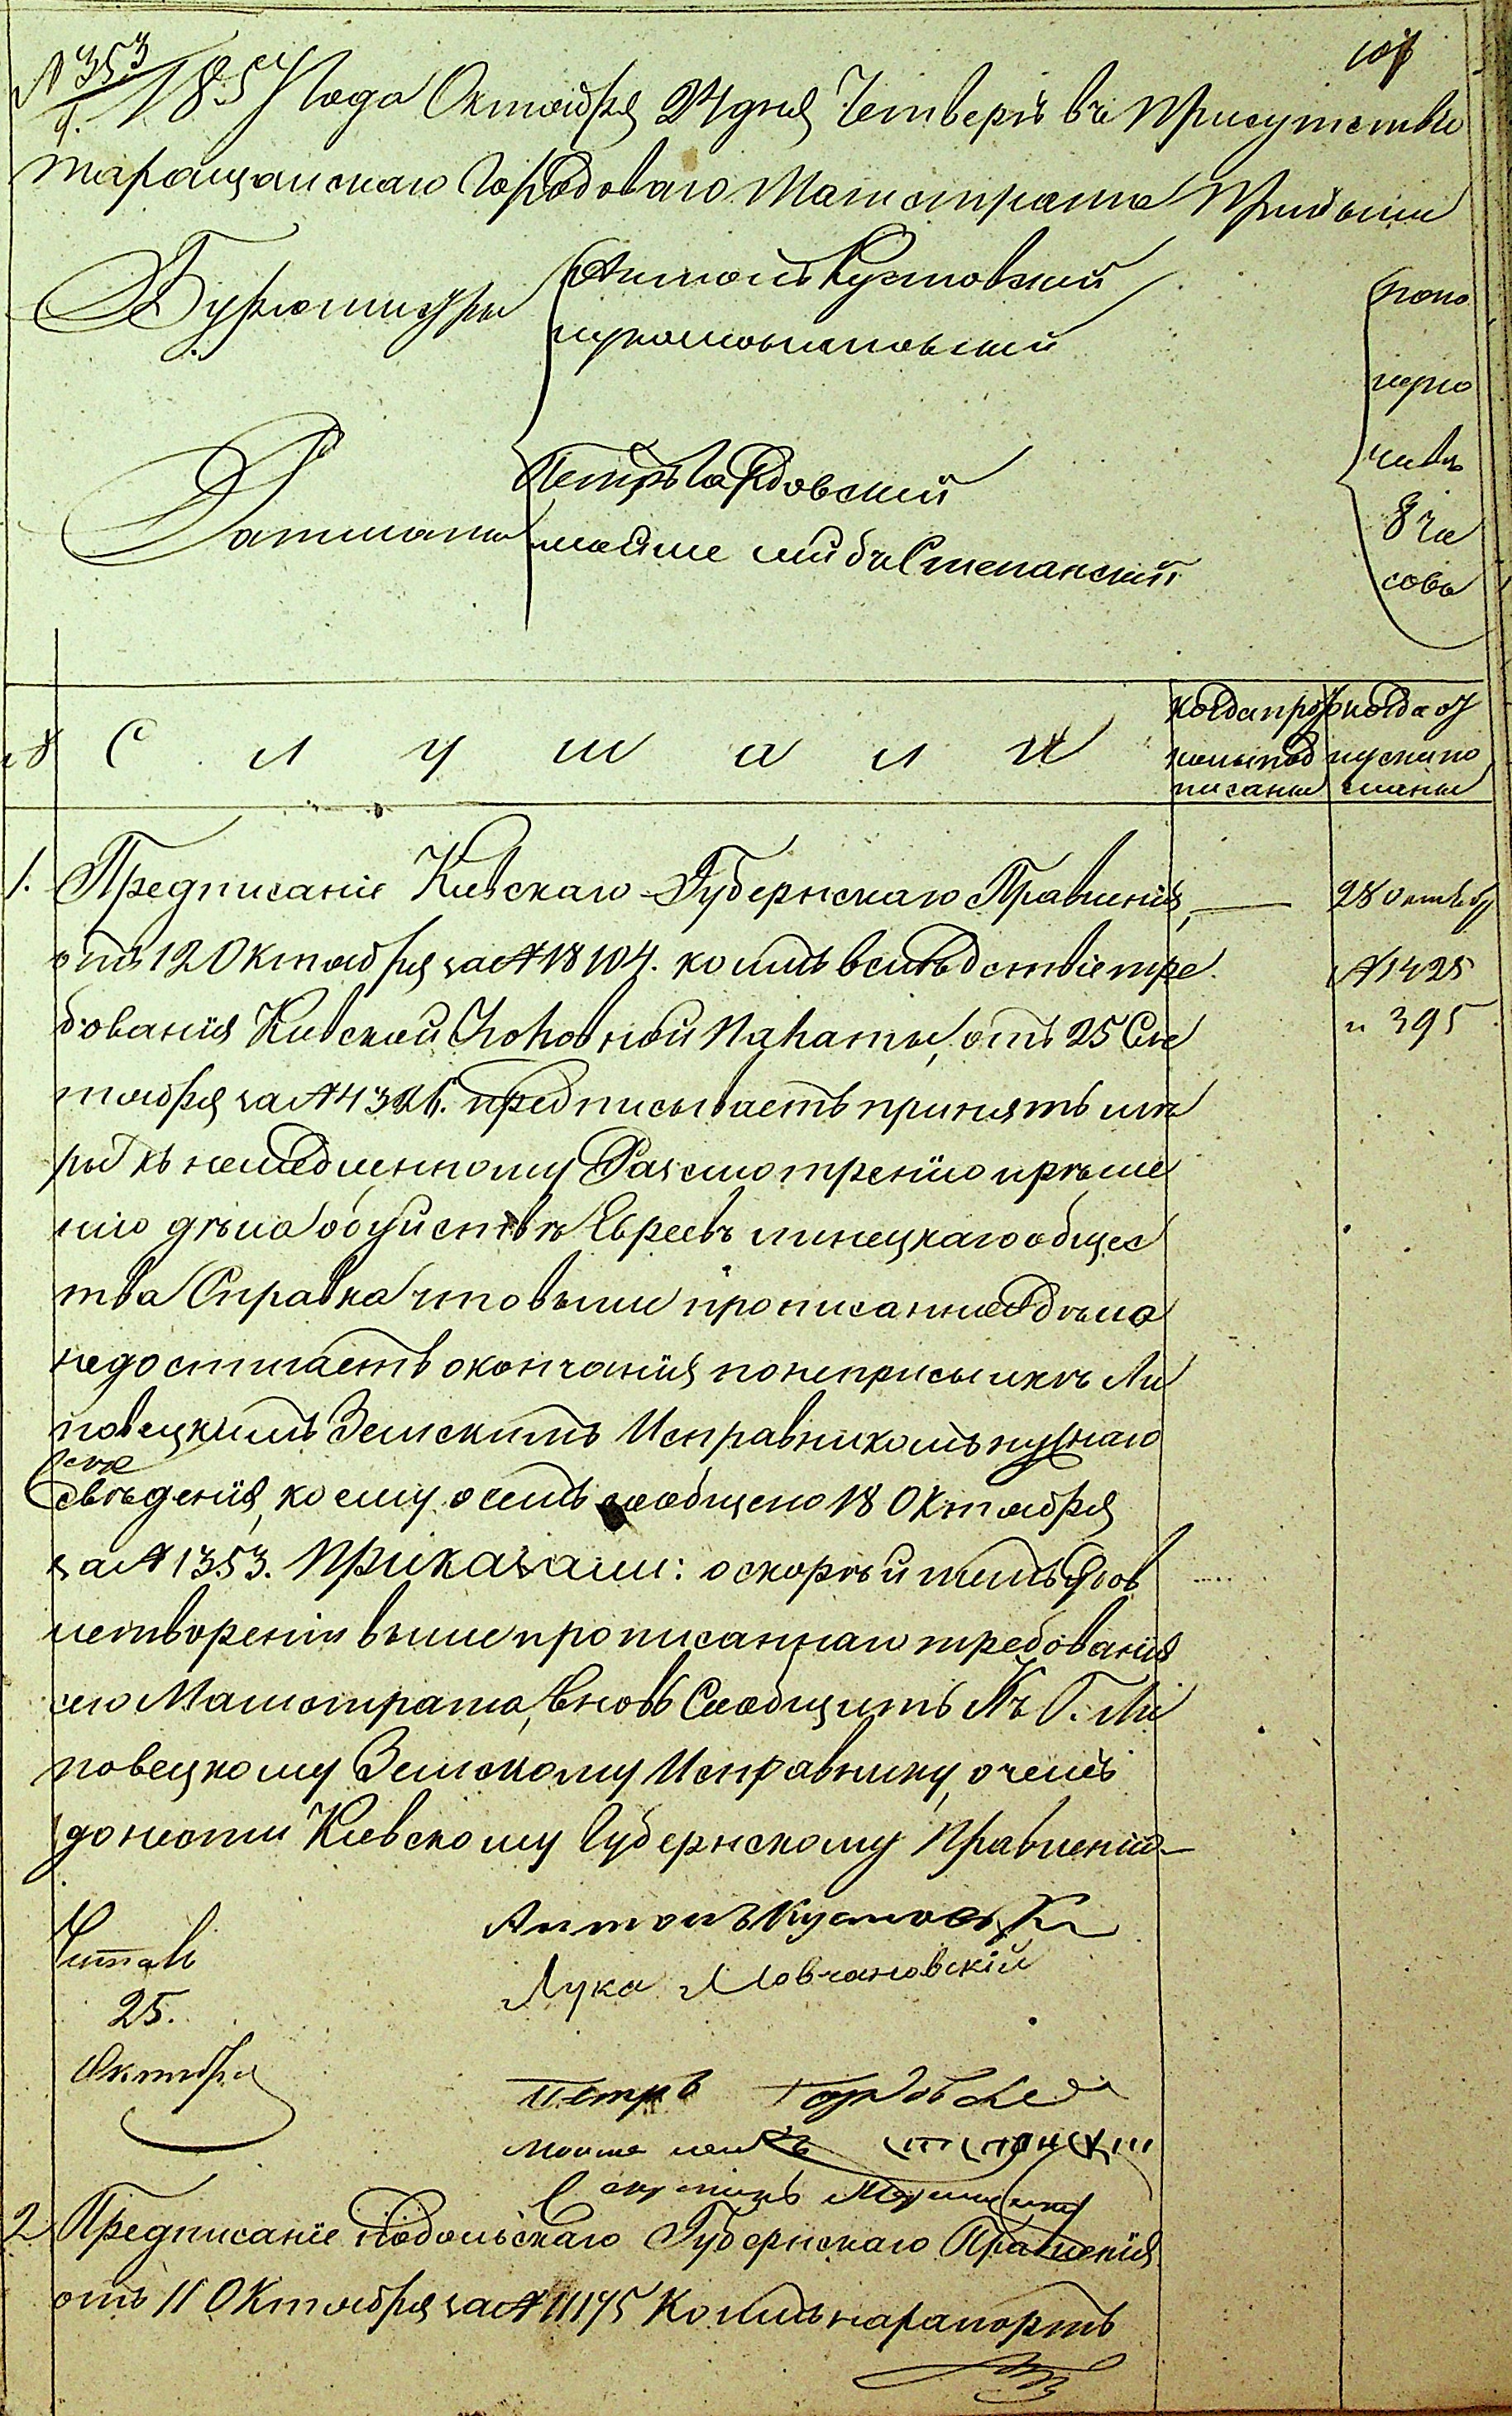 № 353
1857 года Октября 24 дня Четвергъ въ Присутствіи
таращанскаго Городоваго Магистрата Прибыли
Бургомистры
Антонъ Кусмовский
лука мовчановский
Ратманы
Петръ Гардовский
мойше лейбъ Степанский
попо
луно
чивъ
8 ча
совъ
№ С л у ш а л и
когда прото
колы под
писаны
когда от
пуски по
сланы
1. Предписаніе Киевскаго Губернскаго Правленія,
отъ 12 Октября за № 18104. коимъ вследствіе тре
28 октября
№ 1425
и 395
бованія Киевской Уголовной Палаты, отъ 25 Сен
тября за № 4326. предписываетъ принять ме
ры къ немедленному Разсмотренію и реше
нію дела объ убийстве Евреевъ линецкаго общес
тва Справка что выше прописанное дело
недостигаетъ окончанія по неприсылке Ли
повецкимъ Земскимъ Исправникомъ нужнаго
сведенія, коему о семъ сообщено 18 Октября
за № 1353. Приказали: о скорейшемъ удов
летвореніи выше прописаннаго требованія
сего Магистрата, вновь Сообщить Къ Г. Ли
повецкому Земскому Исправнику, о чемъ
донести Киевскому Губернскому Правленію
Читалъ
25.
Октября
Антонъ Кусмовски
Лука Мовчановскій
Петръ Гардовский
Мойше лейбъ Степанский
Секретарь
2 Предписаніе Подольскаго Губернскаго Правленія
отъ 11 Октября за № 11175 Коимъ на рапортъ